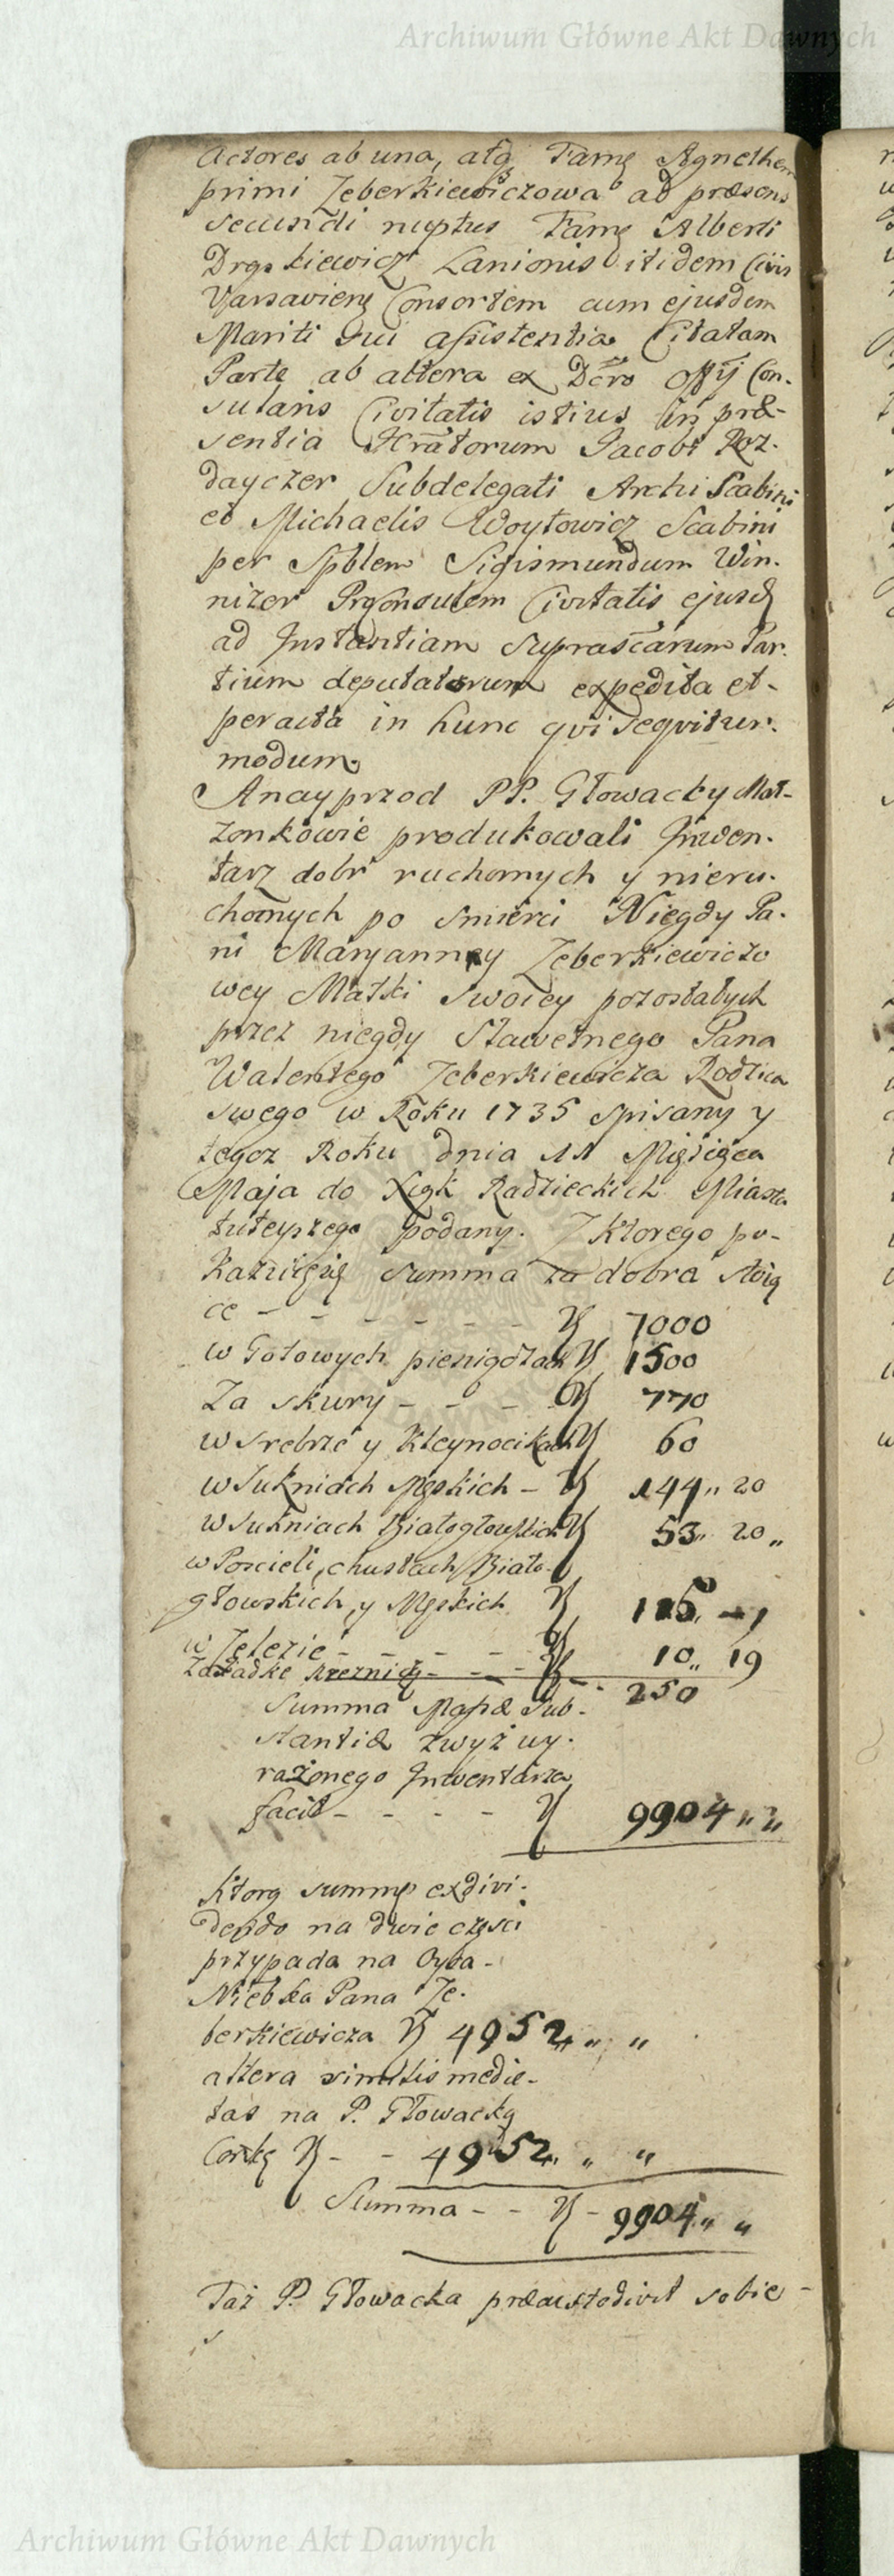 Archiwum Główne Akt Dawnych
Actores ab una, atq Famę Agnethem
primi Zeberkiewiczowa ad præsens
secundi nuptus Famę Alberti
Drąskiewicz Lanionis itidem Civis
Varsavienę Consortem cum ejusdem
Mariti Sui assistentia Citatam
Parte ab altera ex Dcro Offij Con-
sularis Civitatis istius in præ-
sentia Hratorum Jacobi Roz-
dayczer Subdelegati Archi Scabini
et Michaelis Woytowicz Scabini
per Spblem Sigismundum Win-
nizer Proconsulem Civitatis ejusd
ad Instantiam suprascarum Par-
tium deputatorum expedita et
peracta in hunc qvi seqvitur
modum
Anayprzod PP. Głowacky Mał-
zonkowie produkowali Inwen-
tarz dobr ruchomych y nieru-
chomych po smierci Niegdy Pa-
ni Maryanney Zeberkiewiczo
wey Matki swoiey pozostałych
przez niegdy Sławetnego Pana
Walentego Zeberkiewicza Rodzica
swego w Roku 1735 spisany y
tegoz Roku dnia 11 Miesięca
Maja do Xiąk Radzieckich Miasta
tuteyszego podany. Z ktorego po-
kazuięsię summa za dobra stoią
ce - - - - - - 7000
w Gotowych pieniądzach 1500
Za skury - - - - 770
w srebrze y Kleynocikach 60
w Sukniach Męskich - 144 " 20
w Sukniach Białogłowskich 53 " 20 "
w Poscieli, chustach Biało-
głowskich, y Męskich 115 " - 1
w Zelezie - - - - 10 " 19
Za Jadkę Rzeznią - - - 250
Summa Massæ Sub-
stantiæ zwyż wy-
rażonego Inwentarza
facit - - - - 9904 " "
Ktorą summę exdivi-
dendo na dwie częsci
przypada na Oyca
Niebka Pana Ze-
berkiewicza 4952 " "
altera similis medie-
tas na P. Głowacką
Corkę - - 4952 " "
Summa - - - 9904 " "
Taż P. Głowacka præcustodivit sobie -
Archiwum Główne Akt Dawnych